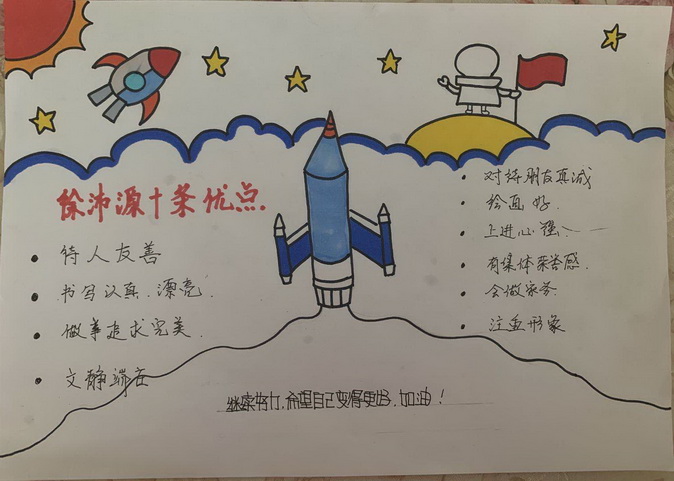 徐沛源十条优点
待人友善
书写认真、漂亮
做事追求完美
文静端庄
对待朋友真诚
绘画好
上进心强
有集体荣誉感
会做家务
注重形象
继续努力,希望自己变得更好,加油!